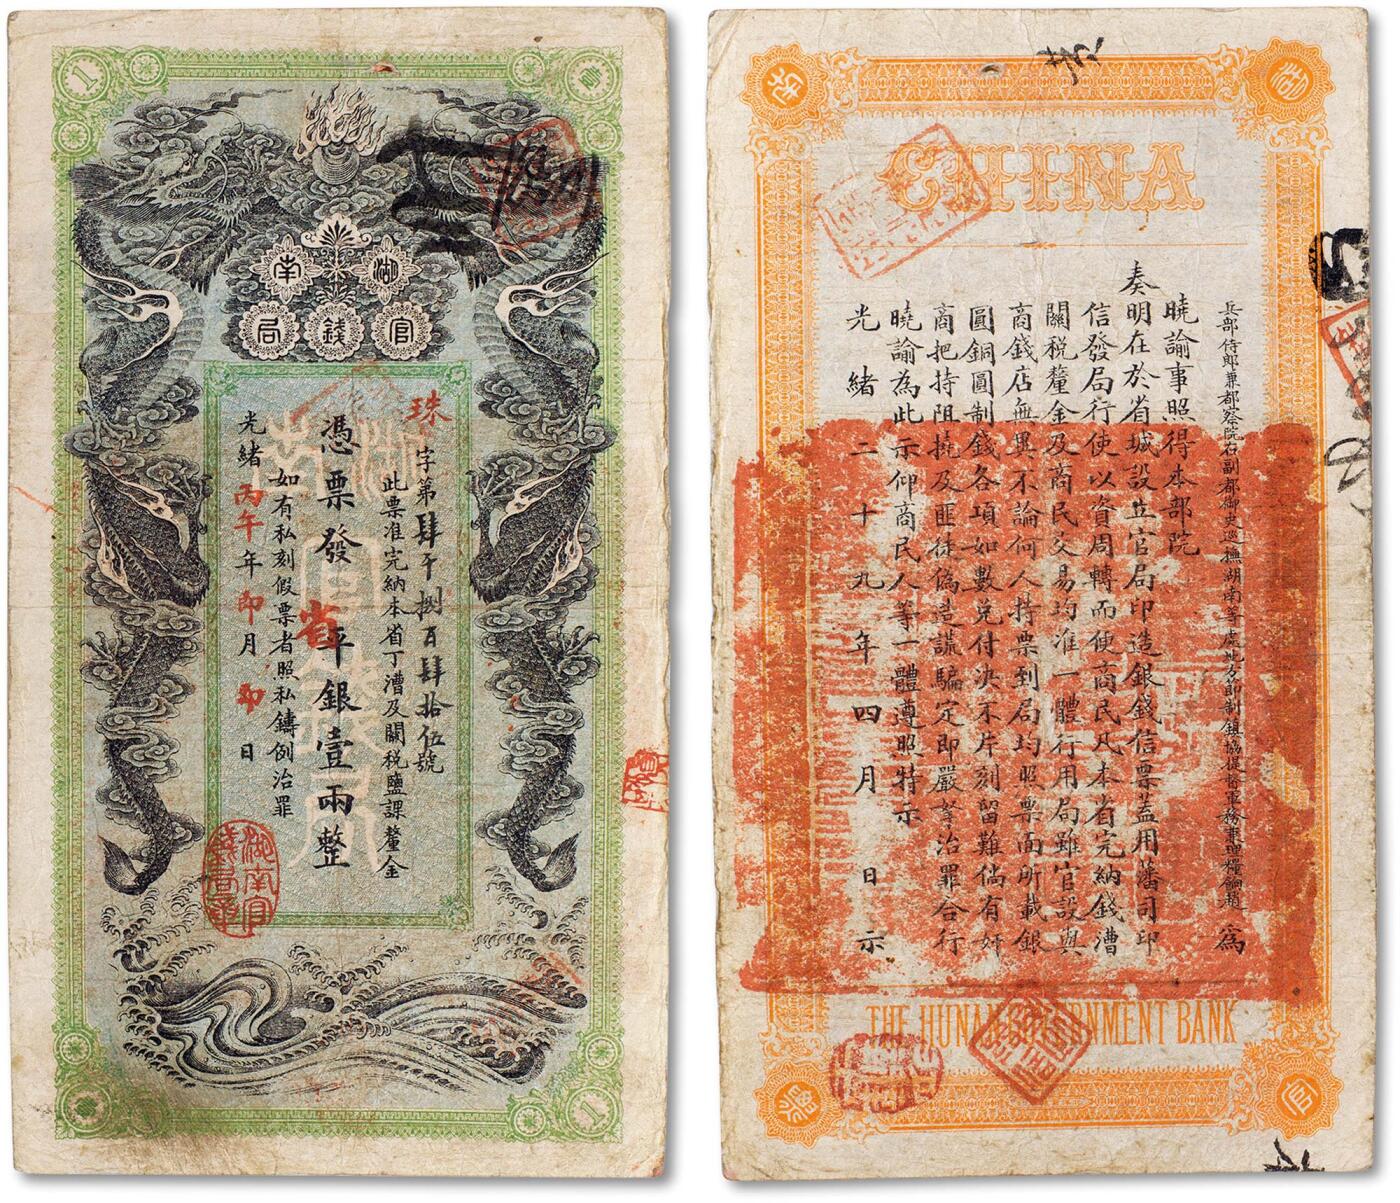 1
壹
湖南
官錢局
珠字第肆千捌百肆拾伍號
此票准完納本省丁漕及關稅鹽課釐金
憑票發省平銀壹兩整
如有私刻假票者照私鑄例治罪
光緒丙午年印月印日
湖南官錢局章
1
湖
南
CHINA
兵部侍郎兼都察院右副都御史巡撫湖南等處地方節制鎮協提督軍務兼理糧餉趙 為
曉諭事照得本部院
奏明在於省城設立官局印造銀錢信票蓋用藩司印
信發局行使以資周轉而便商民凡本省完納錢漕
關稅釐金及商民交易均准一體行用局雖官設與
商錢店無異不論何人持票到局均照票面所載銀
圓銅圓制錢各項如數兌付決不片刻留難倘有奸
商把持阻撓及匪徒偽造謊騙定即嚴拏治罪合行
曉諭為此示仰商民人等一體遵照特示
光緒二十九年四月 日示
THE HUNAN GOVERNMENT BANK
官